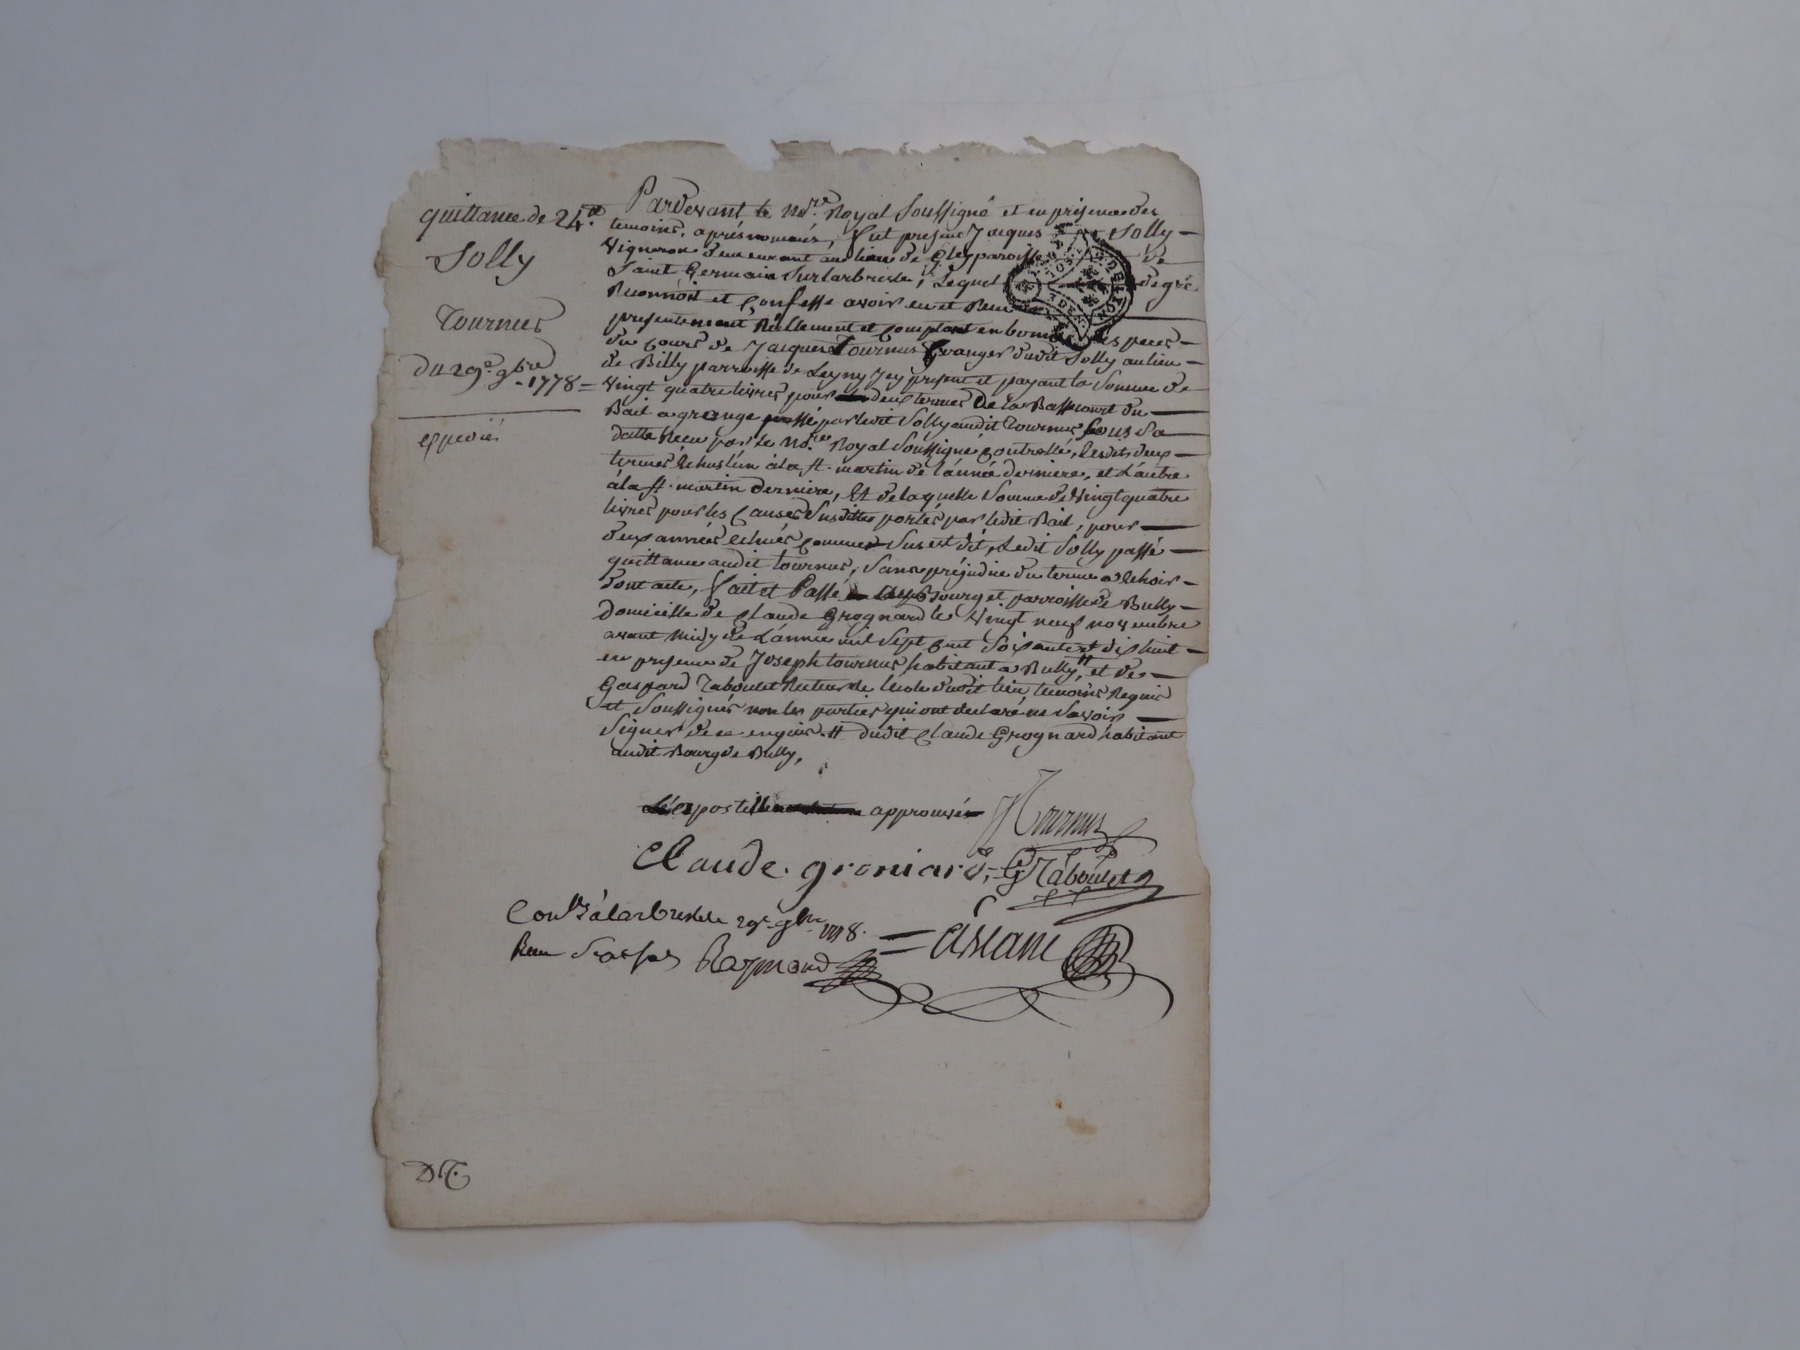 quittance de 24.tt
Solly
Tournus
du 29e 9bre
1778
expedié
Pardevant le No.re Royal Soussigné et en présence des
temoins, aprés nomméz, fut présent Jacques Solly
Vigneron demeurant au lieu de Glay paroisse de
Saint Germain Surlarbresle, Lequel de gré
Reconnoit et Confesse avoir eu et Receu
présentement Réellement et Comptant en bonnes especes
du Cours de Jacques Tournus Granger dudit Solly au lieu
de Billy parroisse de Legny Jcy présent et payant la Somme de
Vingt quatre livres pour deux termes De la Bassecourt du
Bail a grange passé par ledit Solly audit Tournus Sous Sa
datte Receu par le No.re Royal Soussigné Controllé, lesdits deux
termes Echus l'un à la st. martin de l'année derniere, et L'autre
à la st. martin derniere, Et de laquelle Somme de Vingt quatre
livres pour les Causes Susdittes portés par ledit Bail, pour
deux années Echues Comme Sus est dit, Ledit Solly passé
quittance audit tournus, Sans préjudice du terme a Echoir
dont acte, Fait et Passé Bourg et parroisse de Bully
Domicille de Claude Grognard le Vingt neuf novembre
avant Midy de L'année mil Sept Cent Soixante et dix huit
en présence de Joseph tournus habitant a Bully, # et de
Gaspard Taboulet Recteur de l'école dudit lieu temoins Requis
et Soussignés non les parties qui ont declaré ne Savoir
Signer de ce enquis. # dudit Claude Grognard habitant
audit Bourg de Bully,
apostille approuvée JTournus
Claude. groniard, G Taboulet
Con.llé à larbresle le 29e 9bre 1778.
Receu Raymond
D.T.